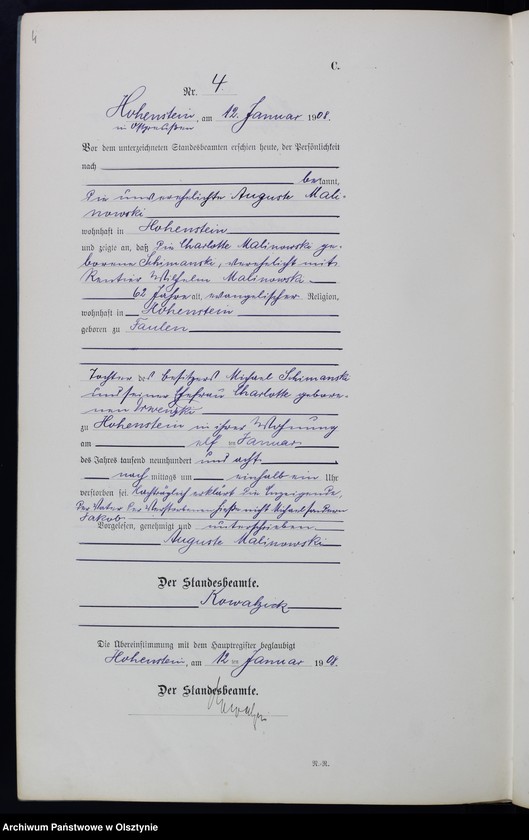 4
C.
Nr. 4
Hohenstein, am 12. Januar 1908.
in Ostpreußen
Vor dem unterzeichneten Standesbeamten erschien heute, der Persönlichkeit
nach
bekannt,
die unverehelichte Auguste Mali-
nowski
wohnhaft in Hohenstein
und zeigte an, daß die Charlotte Malinowski ge-
borene Schimanski, verehelicht mit
Rentier Wilhelm Malinowski
62 Jahre alt, evangelischer Religion,
wohnhaft in Hohenstein
geboren zu Faulen
Tochter des Besitzers Michael Schimanski
und seiner Ehefrau Charlotte gebore-
nen
zu Hohenstein in ihrer Wohnung
am elf ten Januar
des Jahres tausend neunhundert und acht
nach mittags um einhalb ein Uhr
verstorben sei. Nachträglich erklärt die Anzeigende,
der Vater der Verstorbenen hieße nicht Michael sondern
Jakob
Vorgelesen, genehmigt und unterschrieben
Auguste Malinowski
Der Standesbeamte.
Kowalzick
Die Übereinstimmung mit dem Hauptregister beglaubigt
Hohenstein, am 12 ten Januar 1908.
Der Standesbeamte.
N.-R.
Archiwum Państwowe w Olsztynie